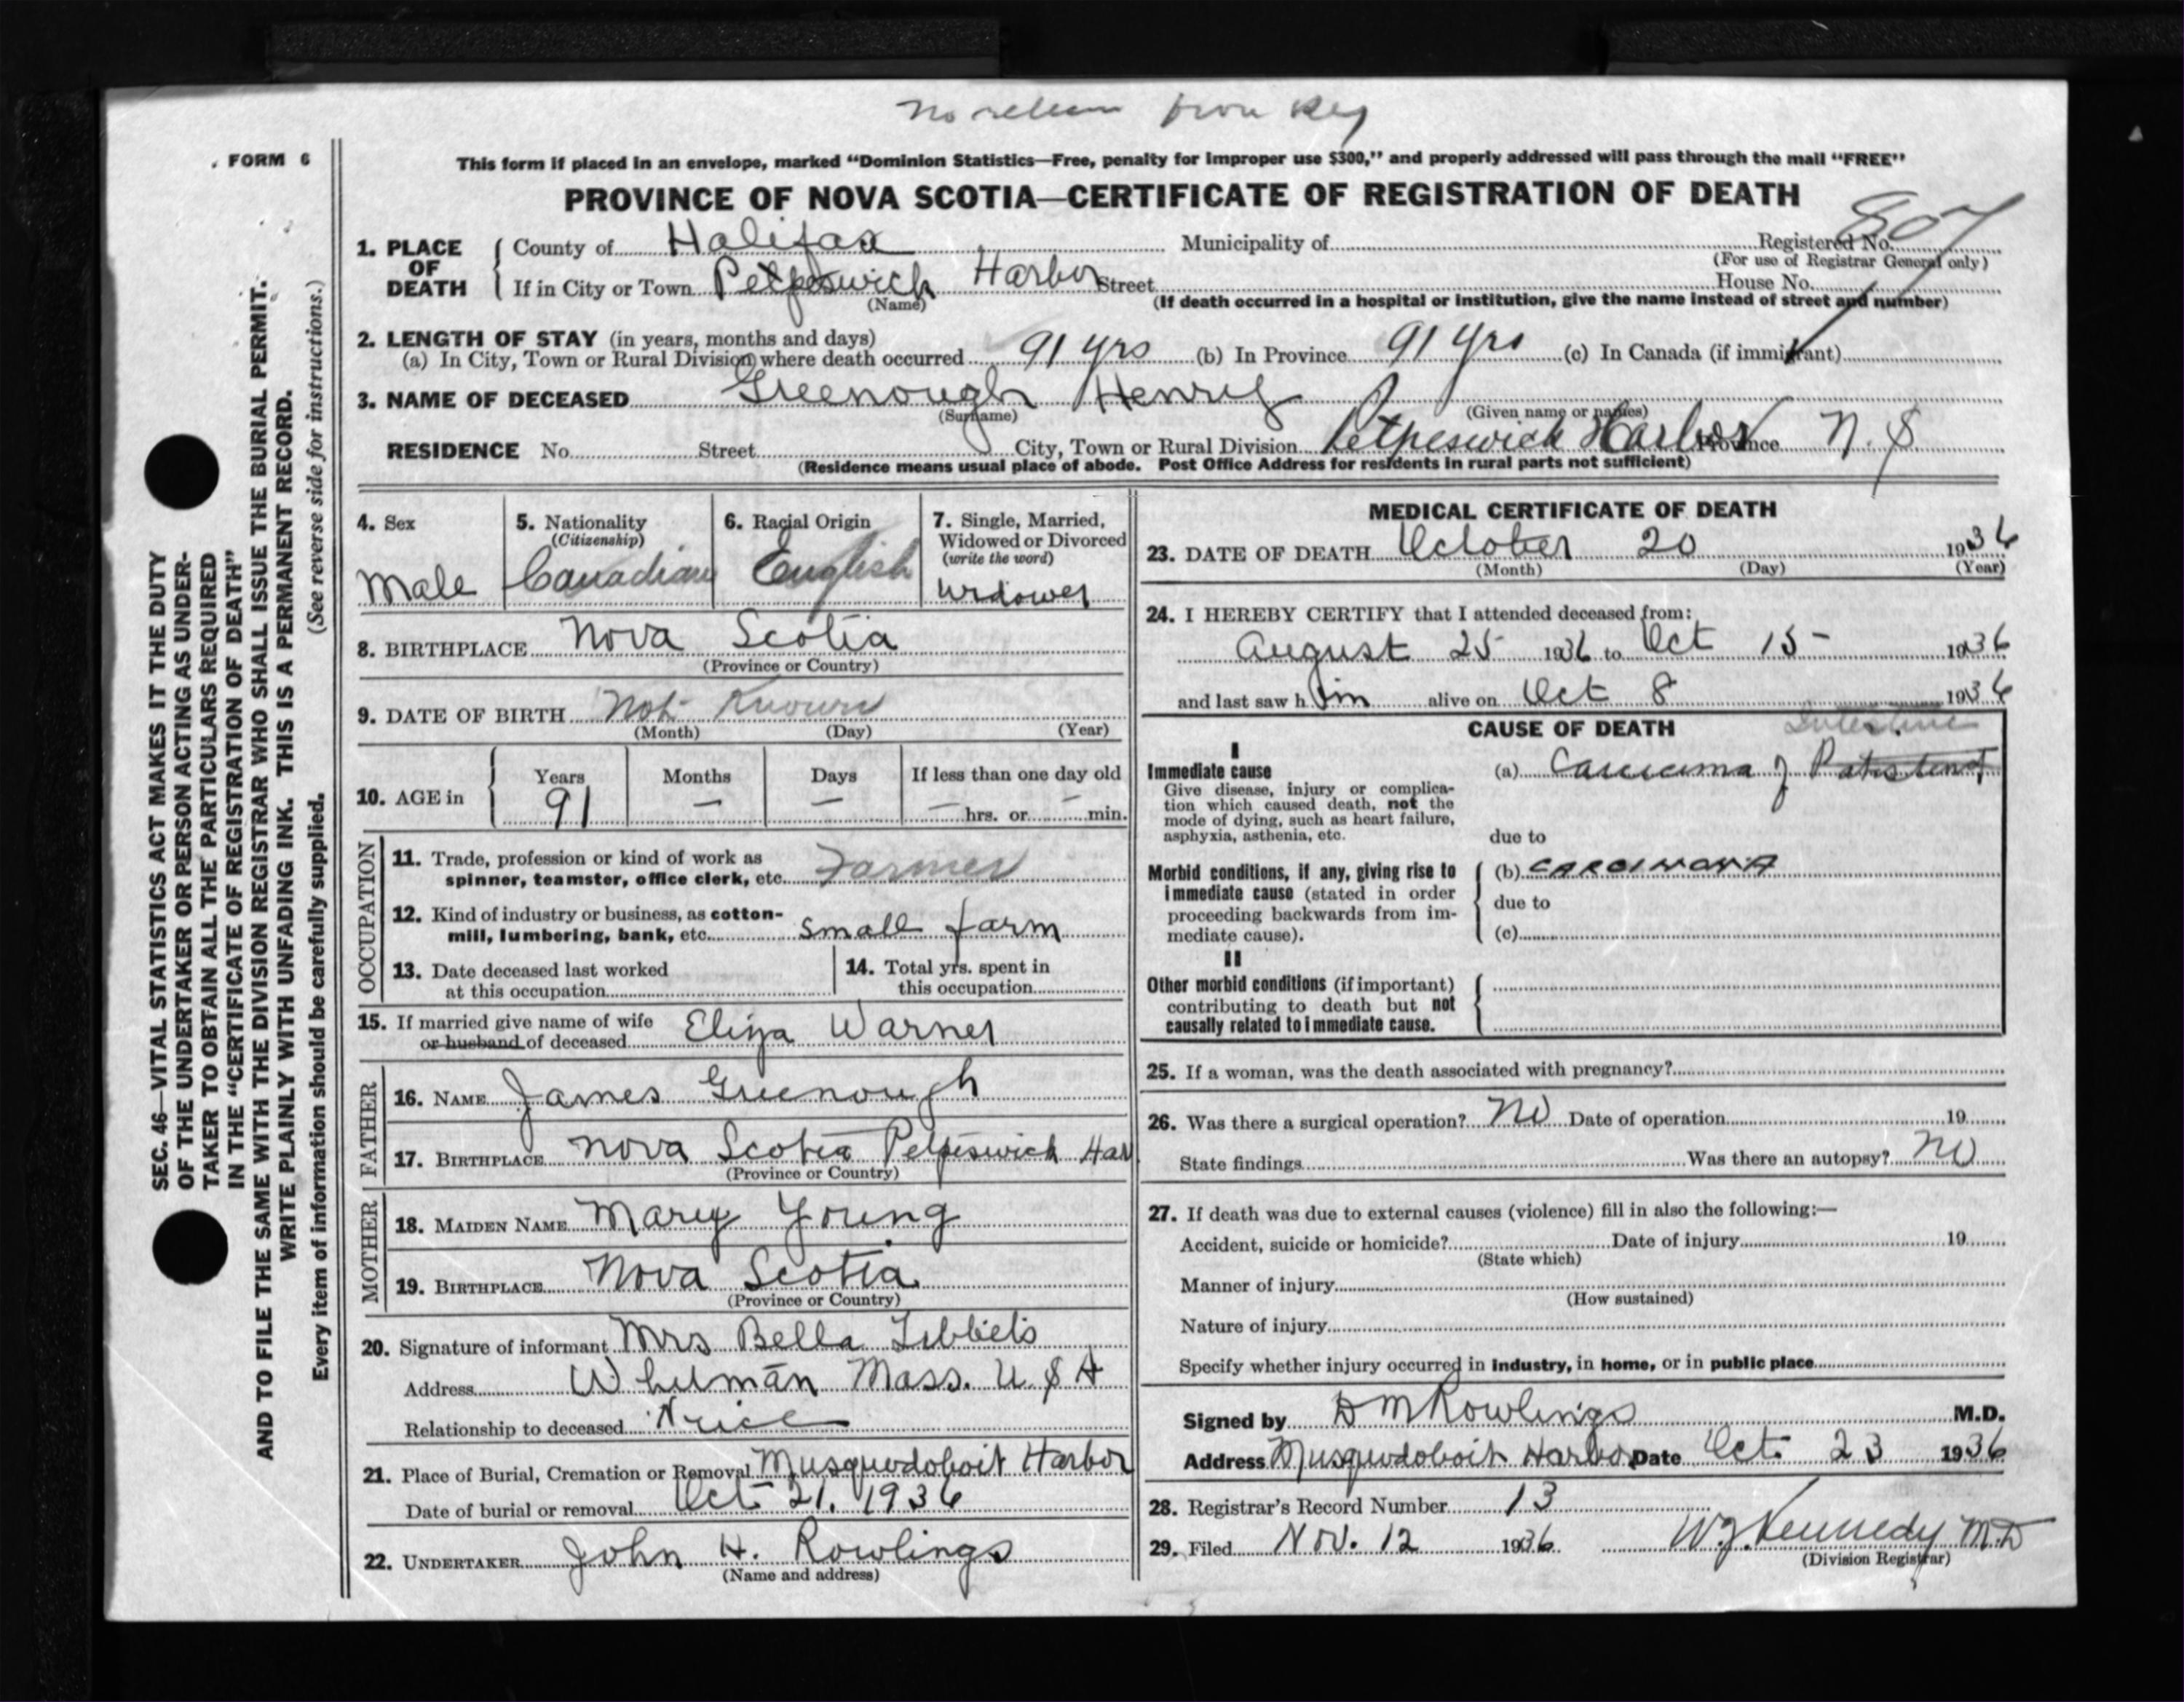 No return from Reg
FORM 6
This form if placed in an envelope, marked “Dominion Statistics—Free, penalty for improper use $300,” and properly addressed will pass through the mail “FREE”
PROVINCE OF NOVA SCOTIA—CERTIFICATE OF REGISTRATION OF DEATH
807
1. PLACE OF DEATH
County of Halifax Municipality of Registered No.
(For use of Registrar General only)
If in City or Town Petpeswick Harbor Street House No.
(Name) (If death occurred in a hospital or institution, give the name instead of street and number)
2. LENGTH OF STAY (in years, months and days)
(a) In City, Town or Rural Division where death occurred 91 yrs (b) In Province 91 yrs (c) In Canada (if immigrant)
3. NAME OF DECEASED Greenough Henry
(Surname) (Given name or names)
RESIDENCE No. Street City, Town or Rural Division Petpeswick Harbor Province N.S
(Residence means usual place of abode. Post Office Address for residents in rural parts not sufficient)
4. Sex
Male
5. Nationality
(Citizenship)
Canadian
6. Racial Origin
English
7. Single, Married,
Widowed or Divorced
(write the word)
Widower
8. BIRTHPLACE Nova Scotia
(Province or Country)
9. DATE OF BIRTH Not Known
(Month) (Day) (Year)
10. AGE in
Years Months Days If less than one day old
91 — — — hrs. or — min.
OCCUPATION
11. Trade, profession or kind of work as
spinner, teamster, office clerk, etc. Farmer
12. Kind of industry or business, as cotton-
mill, lumbering, bank, etc. small farm
13. Date deceased last worked
at this occupation
14. Total yrs. spent in
this occupation
15. If married give name of wife
or husband of deceased Eliza Warner
FATHER
16. NAME James Greenough
17. BIRTHPLACE Nova Scotia Petpeswick Har
(Province or Country)
MOTHER
18. MAIDEN NAME Mary Young
19. BIRTHPLACE Nova Scotia
(Province or Country)
20. Signature of informant Mrs Bella Tibbets
Address Whitman Mass. U S A
Relationship to deceased Niece
21. Place of Burial, Cremation or Removal Musquodoboit Harbor
Date of burial or removal Oct 21. 1936
22. UNDERTAKER John H. Rowlings
(Name and address)
MEDICAL CERTIFICATE OF DEATH
23. DATE OF DEATH October 20 1936
(Month) (Day) (Year)
24. I HEREBY CERTIFY that I attended deceased from:
August 25 1936 to Oct 15 - 1936
and last saw him alive on Oct 8 1936
CAUSE OF DEATH
Intestine
I
Immediate cause
Give disease, injury or complica-
tion which caused death, not the
mode of dying, such as heart failure,
asphyxia, asthenia, etc.
(a) Carcinoma of
due to
Morbid conditions, if any, giving rise to
immediate cause (stated in order
proceeding backwards from im-
mediate cause).
(b) CARCINOMA
due to
(c)
II
Other morbid conditions (if important)
contributing to death but not
causally related to immediate cause.
25. If a woman, was the death associated with pregnancy?
26. Was there a surgical operation? No Date of operation 19
State findings Was there an autopsy? No
27. If death was due to external causes (violence) fill in also the following:—
Accident, suicide or homicide? Date of injury 19
(State which)
Manner of injury
(How sustained)
Nature of injury
Specify whether injury occurred in industry, in home, or in public place
Signed by D M Rowlings M.D.
Address Musquodoboit Harbor Date Oct. 23 1936
28. Registrar's Record Number 13
29. Filed Nov. 12 1936 W.J. Kennedy M.D
(Division Registrar)
SEC. 46—VITAL STATISTICS ACT MAKES IT THE DUTY
OF THE UNDERTAKER OR PERSON ACTING AS UNDER-
TAKER TO OBTAIN ALL THE PARTICULARS REQUIRED
IN THE “CERTIFICATE OF REGISTRATION OF DEATH”
AND TO FILE THE SAME WITH THE DIVISION REGISTRAR WHO SHALL ISSUE THE BURIAL PERMIT.
WRITE PLAINLY WITH UNFADING INK. THIS IS A PERMANENT RECORD.
Every item of information should be carefully supplied. (See reverse side for instructions.)